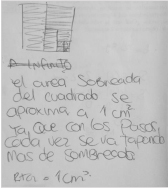 infinito
el area Sobreada
del cuadrado se
aproxima a 1 cm²
Ya, que con los Pasos,
cada vez se va tapando
mas de sombreado
Rta = 1cm².